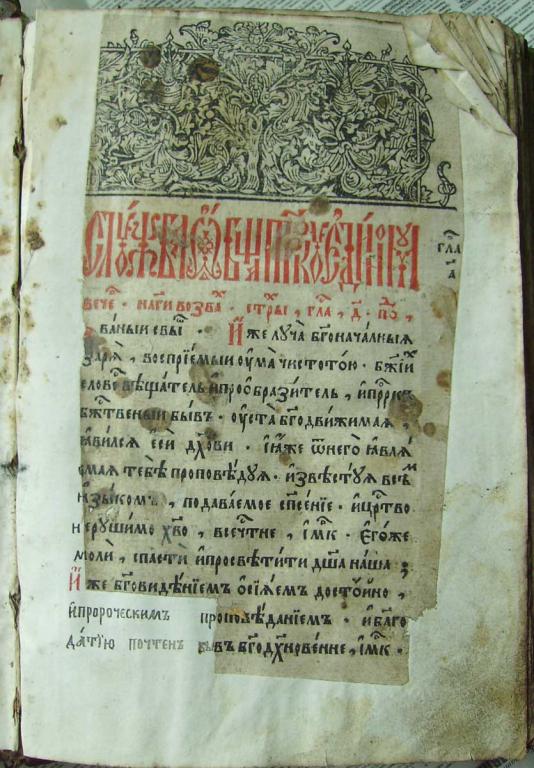 гла́ а҃
вече҃ . на гі҃и возва҃ . стр҃ы , гла҃ , д҃ . по҃ ,
ѕваныи свы҃ . И҆же луча̀ бг҃онача́лныѧ
зарѧ̀ , воспрїе́мыи оу҆ма̀ чистото́ю . бж҃їи
словѐ вѣща́тель и҆ прѡѡбрази́тель , и҆ прⷪ҇ркъ
бж҃твеныи бы́въ . оу҆ста̀ бг҃одви́жимаѧ ,
ꙗ҆ви́лсѧ є҆сѝ дх҃ови . ꙗ҆́же ѿ него̀ ꙗ҆влѧ́
емаѧ тебѣ̀ проповѣ́дуѧ . и҆звѣсту́ѧ всѣ́м
ꙗ҆зы́комъ , подава́емое сп҃се́нїе . и҆ цр҃тво
нерꙋши́мо хв҃о , всече́тне , і҆м҃к . є҆го́же
молѝ , спастѝ и҆ просвѣти́ти дш҃а на́ша ;
И҆́же бг҃овидѣ́нїемъ ѡ҆сїѧ́емъ досто́ино ,
и҆ проро́ческимъ проповѣ́данїемъ . и҆ блг҃о
да́тїю почте́нъ бы́въ бг҃одх҃нове́нне , і҆м҃к .